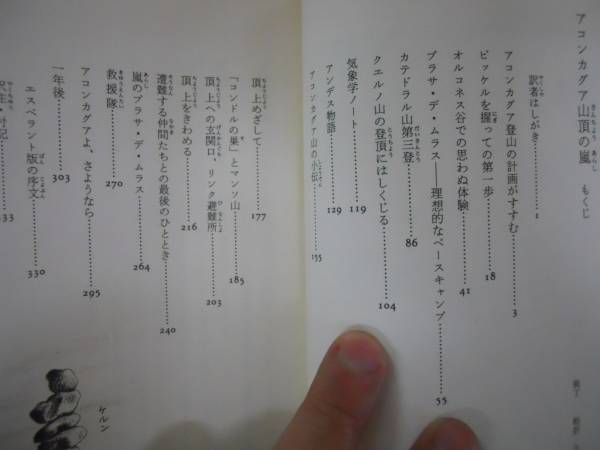 アコンカグア山頂の嵐 もくじ
訳者はしがき 1
アコンカグア登山の計画がすすむ 3
ピッケルを握っての第一歩 18
オルコネス谷での思わぬ体験 41
プラサ・デ・ムラス――理想的なベースキャンプ 55
カテドラル山第三登 86
クエルノ山の登頂にはしくじる 104
気象学ノート 119
アンデス物語 129
アコンカグア山の小伝 155
頂上めざして 177
「コンドルの巣」とマンソ山 185
頂上への玄関口、リンク避難所 203
頂上をきわめる 216
遭難する仲間たちとの最後のひととき 240
嵐のプラサ・デ・ムラス 264
救援隊 270
アコンカグアよ、さようなら 295
一年後 303
エスペラント版の序文 330
333
ケルン